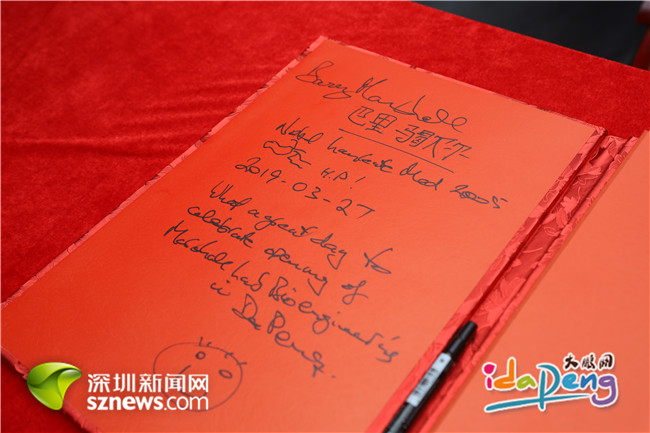 Barry Marshall
巴里
Nobel Laureate Med 2005
H.P!
2019-03-27
What a great day to
celebrate opening of
Marshall Lab Bioengineering
in Da Peng.
深圳新闻网
sznews.com
大鹏网
idapeng